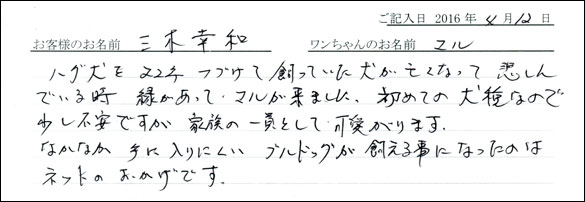 ご記入日 2016 年 4 月 12 日
お客様のお名前 三木幸和 ワンちゃんのお名前 マル
パグ犬を 22年 つづけて 飼っていた犬が亡くなって 悲しん
でいる時 縁があって、マルが来ました、初めての犬種なので
少し不安ですが 家族の一員として 可愛がります.
なかなか 手に入りにくい ブルドッグが 飼える事になったのは
ネットの おかげです.